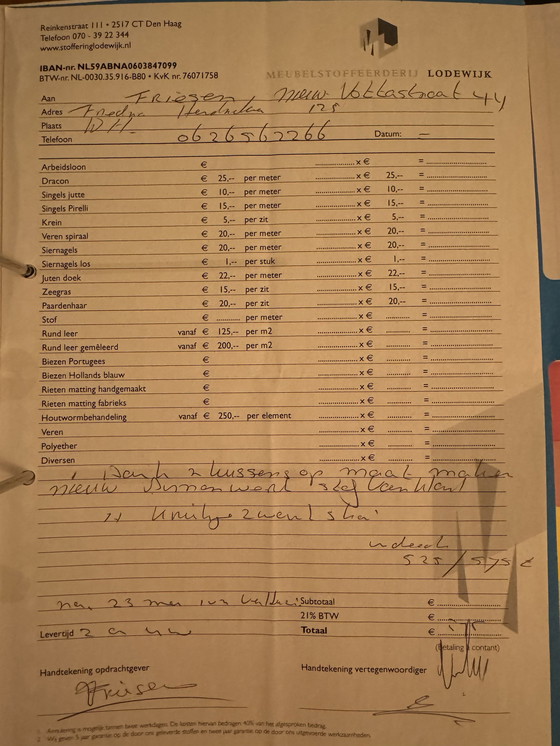 Reinkenstraat 111 • 2517 CT Den Haag
Telefoon 070 - 39 22 344
www.stofferinglodewijk.nl
IBAN-nr. NL59ABNA0603847099
BTW-nr. NL-0030.35.916-B80 • KvK nr. 76071758
MEUBELSTOFFEERDERIJ LODEWIJK
Aan Friesen, nieuw 44
Adres 125
Plaats
Telefoon 0626562266 Datum: —
Arbeidsloon € x € =
Dracon € 25,-- per meter x € 25,-- =
Singels jutte € 10,-- per meter x € 10,-- =
Singels Pirelli € 15,-- per meter x € 15,-- =
Krein € 5,-- per zit x € 5,-- =
Veren spiraal € 20,-- per meter x € 20,-- =
Siernagels € 20,-- per meter x € 20,-- =
Siernagels los € 1,-- per stuk x € 1,-- =
Juten doek € 22,-- per meter x € 22,-- =
Zeegras € 15,-- per zit x € 15,-- =
Paardenhaar € 20,-- per zit x € 20,-- =
Stof € per meter x € =
Rund leer vanaf € 125,-- per m2 x € =
Rund leer gemêleerd vanaf € 200,-- per m2 x € =
Biezen Portugees € x € =
Biezen Hollands blauw € x € =
Rieten matting handgemaakt € x € =
Rieten matting fabrieks € x € =
Houtwormbehandeling vanaf € 250,-- per element x € =
Veren x € =
Polyether x € =
Diversen x € =
2 kussens op maat maken
nieuw binnenwerk
525 / 575 €
23 mei Subtotaal €
21% BTW €
Levertijd 2 Totaal €
(betaling à contant)
Handtekening opdrachtgever Handtekening vertegenwoordiger
Friesen
1 Annulering is mogelijk binnen twee werkdagen. De kosten hiervan bedragen 40% van het afgesproken bedrag.
2 Wij geven 5 jaar garantie op de door ons geleverde stoffen en twee jaar garantie op de door ons uitgevoerde werkzaamheden.